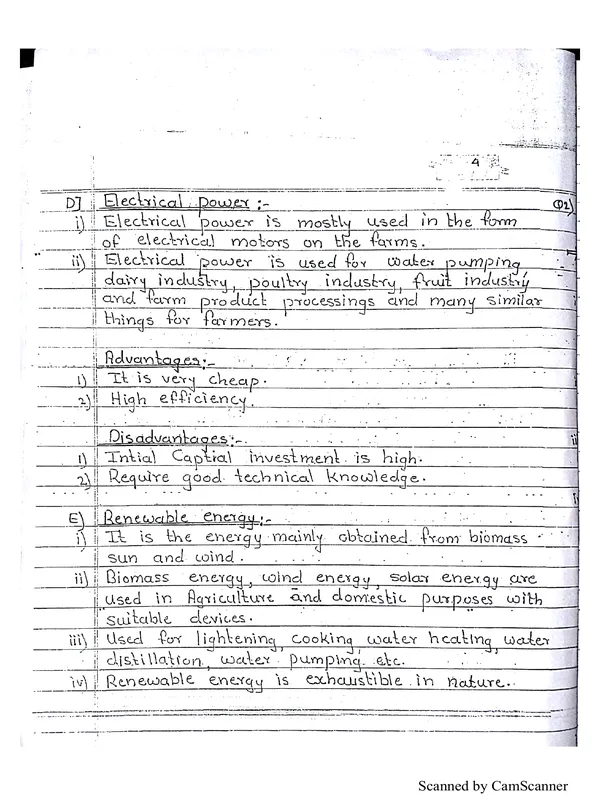 4
D] Electrical power :-
Q2)
i) Electrical power is mostly used in the form
of electrical motors on the farms.
ii) Electrical power is used for water pumping
dairy industry, poultry industry, fruit industry
and farm product processings and many similar
things for farmers.
Advantages:-
1) It is very cheap.
2) High efficiency.
Disadvantages:-
1) Intial Captial investment is high.
2) Require good technical knowledge.
E) Renewable energy:-
i) It is the energy mainly obtained from biomass
sun and wind.
ii) Biomass energy, wind energy, solar energy are
used in Agriculture and domestic purposes with
suitable devices.
iii) Used for lightening, cooking, water heating, water
distillation, water pumping etc.
iv) Renewable energy is exhaustible in nature.
Scanned by CamScanner